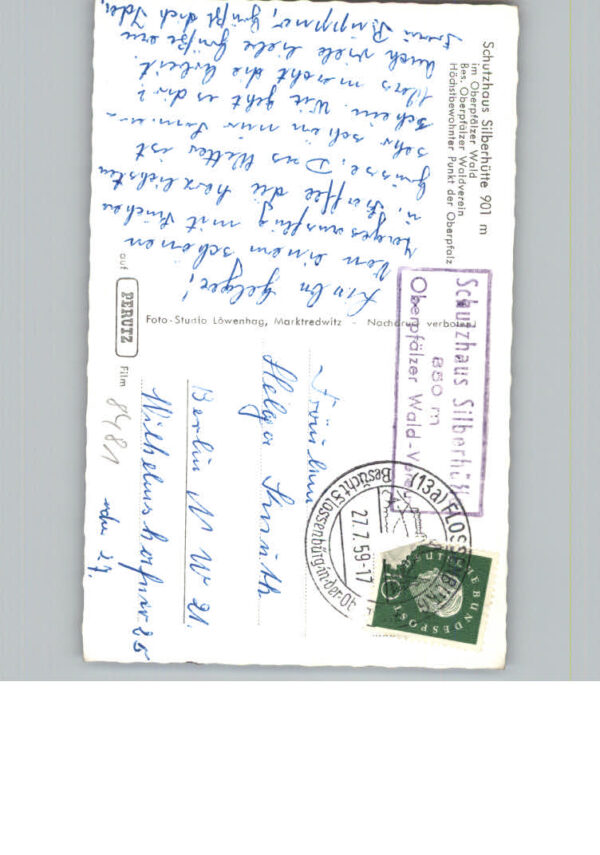 Schutzhaus Silberhütte 901 m
im Oberpfälzer Wald
Bes. Oberpfälzer Waldverein
Höchstbewohnter Punkt der Oberpfalz
Von einem schönen
Tagesausflug mit Kuchen
u. Kaffee die herzlichsten
Grüsse. Das Wetter ist
sehr schön nur Sonnen-
schein. Wie geht es dir?
Was macht die Arbeit.
Auch viele liebe Grüße von
grüßt dich Ida
auf PERUTZ Film
Foto-Studio Löwenhag, Marktredwitz - Nachdruck verboten!
Schutzhaus Silberhütt
880 m
Oberpfälzer Wald-Ver
(13a) FLOSSENBÜRG
27.7.59-17
Besucht Flossenbürg
DEUTSCHE BUNDESPOST
Fräulein
Helga
Berlin N W 21.
Wilhelmshafener 25
8481